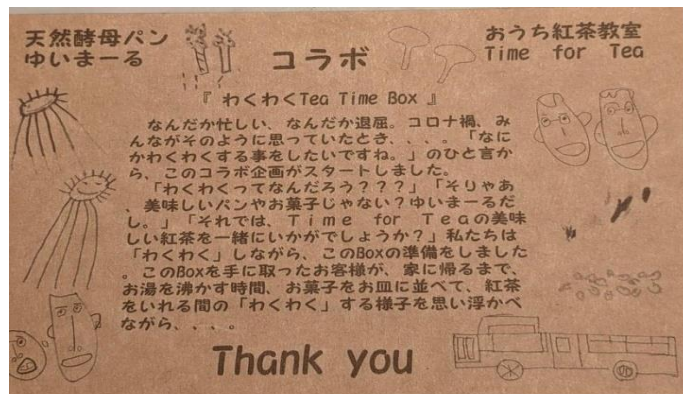 天然酵母パン
ゆいまーる
コラボ
おうち紅茶教室
Time for Tea
『 わくわくTea Time Box 』
なんだか忙しい、なんだか退屈。コロナ禍、み
んながそのように思っていたとき、、、。「なに
かわくわくする事をしたいですね。」のひと言か
ら、このコラボ企画がスタートしました。
「わくわくってなんだろう???」「そりゃあ
、美味しいパンやお菓子じゃない?ゆいまーるだ
し。」「それでは、Time for Teaの美味
しい紅茶を一緒にいかがでしょうか?」私たちは
「わくわく」しながら、このBoxの準備をしました
。このBoxを手に取ったお客様が、家に帰るまで、
お湯を沸かす時間、お菓子をお皿に並べて、紅茶
をいれる間の「わくわく」する様子を思い浮かべ
ながら、、、。
Thank you